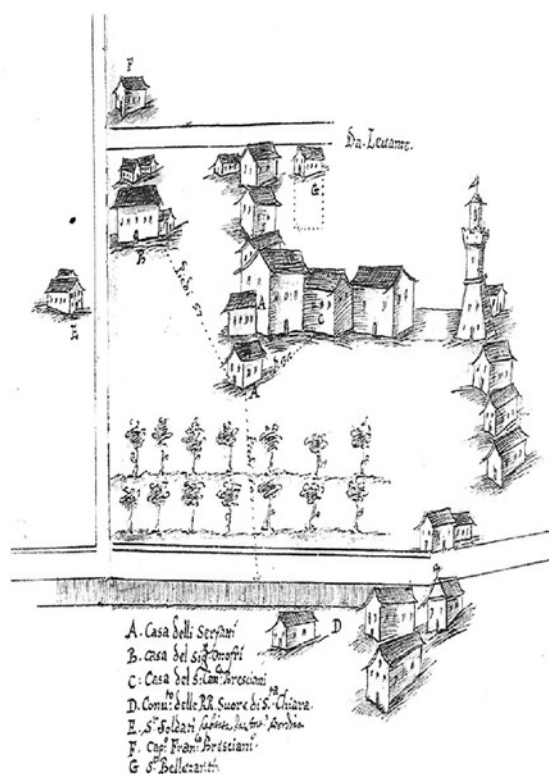 F
Da Levante.
G
B
piedi 57
A
C
E
A
D
A. Casa delli Serfani
B. casa del Sigr Onofri
C: Casa del S: Bresciani
D. Conuto: delle RR. Suore di S.ta Chiara.
E. Sr Soldati
F. Capo: Franco Bresciani.
G Sr